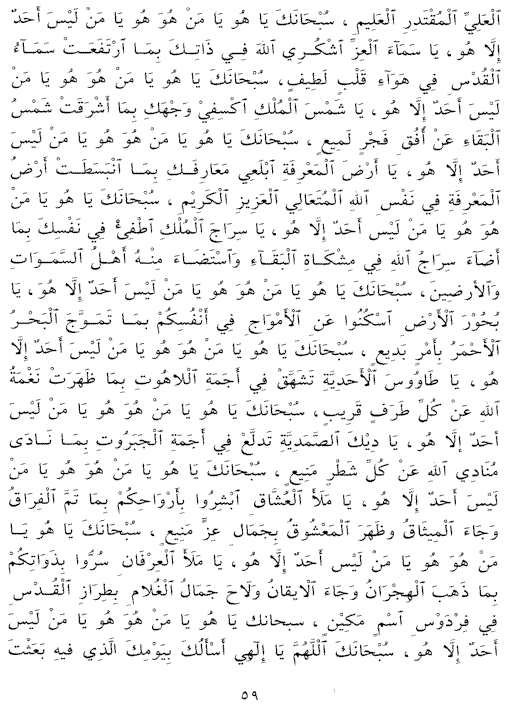 ٱلْعَلِيِّ ٱلْمُقْتَدِرِ ٱلْعَلِيمِ ، سُبْحَانَكَ يَا هُوَ يَا مَنْ هُوَ هُوَ يَا مَنْ لَيْسَ أَحَدٌ
إِلَّا هُوَ، يَا سَمَآءَ ٱلْعِزِّ ٱشْكُرِي ٱللهَ فِي ذَاتِكِ بِمَا ٱرْتَفَعَتْ سَمَآءُ
ٱلْقُدْسِ فِي هَوَآءِ قَلْبٍ لَطِيفٍ، سُبْحَانَكَ يَا هُوَ يَا مَنْ هُوَ هُوَ يَا مَنْ
لَيْسَ أَحَدٌ إِلَّا هُوَ، يَا شَمْسَ ٱلْمُلْكِ ٱكْسِفِيْ وَجْهَكِ بِمَا أَشْرَقَتْ شَمْسُ
ٱلْبَقَاءِ عَنْ أُفُقِ فَجْرٍ لَمِيعٍ ، سُبْحَانَكَ يَا هُوَ يَا مَنْ هُوَ هُوَ يَا مَنْ لَيْسَ
أَحَدٌ إِلَّا هُوَ، يَا أَرْضَ ٱلْمَعْرِفَةِ ٱبْلَعِي مَعَارِفَكِ بِمَا ٱنْبَسَطَتْ أَرْضُ
ٱلْمَعْرِفَةِ فِي نَفْسِ ٱلله ٱلْمُتَعَالِي ٱلْعَزِيزِ ٱلْكَرِيْمِ ، سُبْحَانَكَ يَا هُوَ يَا مَنْ
هُوَ هُوَ يَا مَنْ لَيْسَ أَحَدٌ إِلَّا هُوَ، يَا سِرَاجَ ٱلْمُلْكِ ٱطْفِئْ فِي نَفْسِكَ بِمَا
أَضَآءَ سِرَاجُ ٱللهِ فِي مِشْكَاةِ ٱلْبَقَـآءِ وَٱسْتَضَـاءَ مِنْـهُ أَهْـلُ ٱلسَّمٰوَاتِ
وَٱلْأَرَضِينَ، سُبْحَانَكَ يَا هُوَ يَا مَنْ هُوَ هُوَ يَا مَنْ لَيْسَ أَحَدٌ إِلَّا هُوَ، يَا
بُحُوْرَ ٱلْأَرْضِ ٱسْكُنُوا عَنِ ٱلْأَمْوَاجِ فِي أَنْفُسِكُمْ بِمَا تَمَوَّجَ ٱلْبَحْرُ
ٱلْأَحْمَرُ بِأَمْرٍ بَدِيعٍ ، سُبْحَانَكَ يَا هُوَ يَا مَنْ هُوَ هُوَ يَا مَنْ لَيْسَ أَحَدٌ إِلَّا
هُوَ، يَا طَاوُوسَ ٱلْأَحَدِيَّةِ تَشَهَّقْ فِي أَجَمَةِ ٱللَاهُوتِ بِمَا ظَهَرَتْ نَغْمَةُ
ٱللهِ عَنْ كُلِّ طَرَفٍ قَرِيبٍ، سُبْحَانَكَ يَا هُوَ يَا مَنْ هُوَ هُوَ يَا مَنْ لَيْسَ
أَحَدٌ إِلَّا هُوَ، يَا دِيْكَ ٱلصَّمَدِيَّةِ تَدَلَّعْ فِي أَجَمَةِ ٱلْجَبَرُوتِ بِمَا نَادَى
مُنَادِي ٱللهِ عَنْ كُلِّ شَطْرٍ مَنِيعٍ ، سُبْحَانَكَ يَا هُوَ يَا مَنْ هُوَ هُوَ يَا مَنْ
لَيْسَ أَحَدٌ إِلَّا هُوَ، يَا مَلَأَ ٱلْعُشَّاقِ ٱبْشِرُوا بِأَرْوَاحِكُمْ بِمَا تَمَّ ٱلْفِرَاقُ
وَجَاءَ ٱلْمِيثَاقُ وَظَهَرَ ٱلْمَعْشُوقُ بِجَمَالِ عِزٍّ مَنِيعٍ ، سُبْحَانَكَ يَا هُوَ يَـا
مَنْ هُوَ هُوَ يَا مَنْ لَيْسَ أَحَدٌ إِلَّا هُوَ، يَا مَلَأَ ٱلْعِرْفَانِ سُرُّوا بِذَوَاتِكُمْ
بِمَا ذَهَبَ ٱلْهِجْرَانُ وَجَاءَ ٱلْايقَانُ وَلَاحَ جَمَالُ ٱلْغُلَامِ بِطِرَازِ ٱلْقُدْسِ
فِي فِرْدَوْسِ ٱسْمٍ مَكِيْنٍ، سبحانك يَا هُوَ يَا مَنْ هُوَ هُوَ يَا مَنْ لَيْسَ
أَحَدٌ إِلَّا هُوَ، سُبْحَانَكَ ٱللَّهُمَّ يَا إِلٰهِي أَسْأَلُكَ بِيَوْمِكَ الَّذِي فيهِ بَعَثْتَ
٥٩